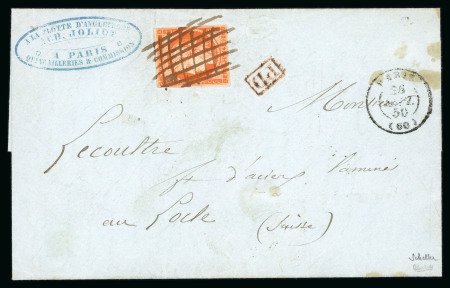 A LA FLOTTE D'ANGLETERRE
SUR. JOLIOT
A PARIS
QUINCAILLERIES & COMMISSION
PD
PARIS
50
(60)
Monsieur
Lecoultre
ft d'aciers laminés
au Locle (Suisse)